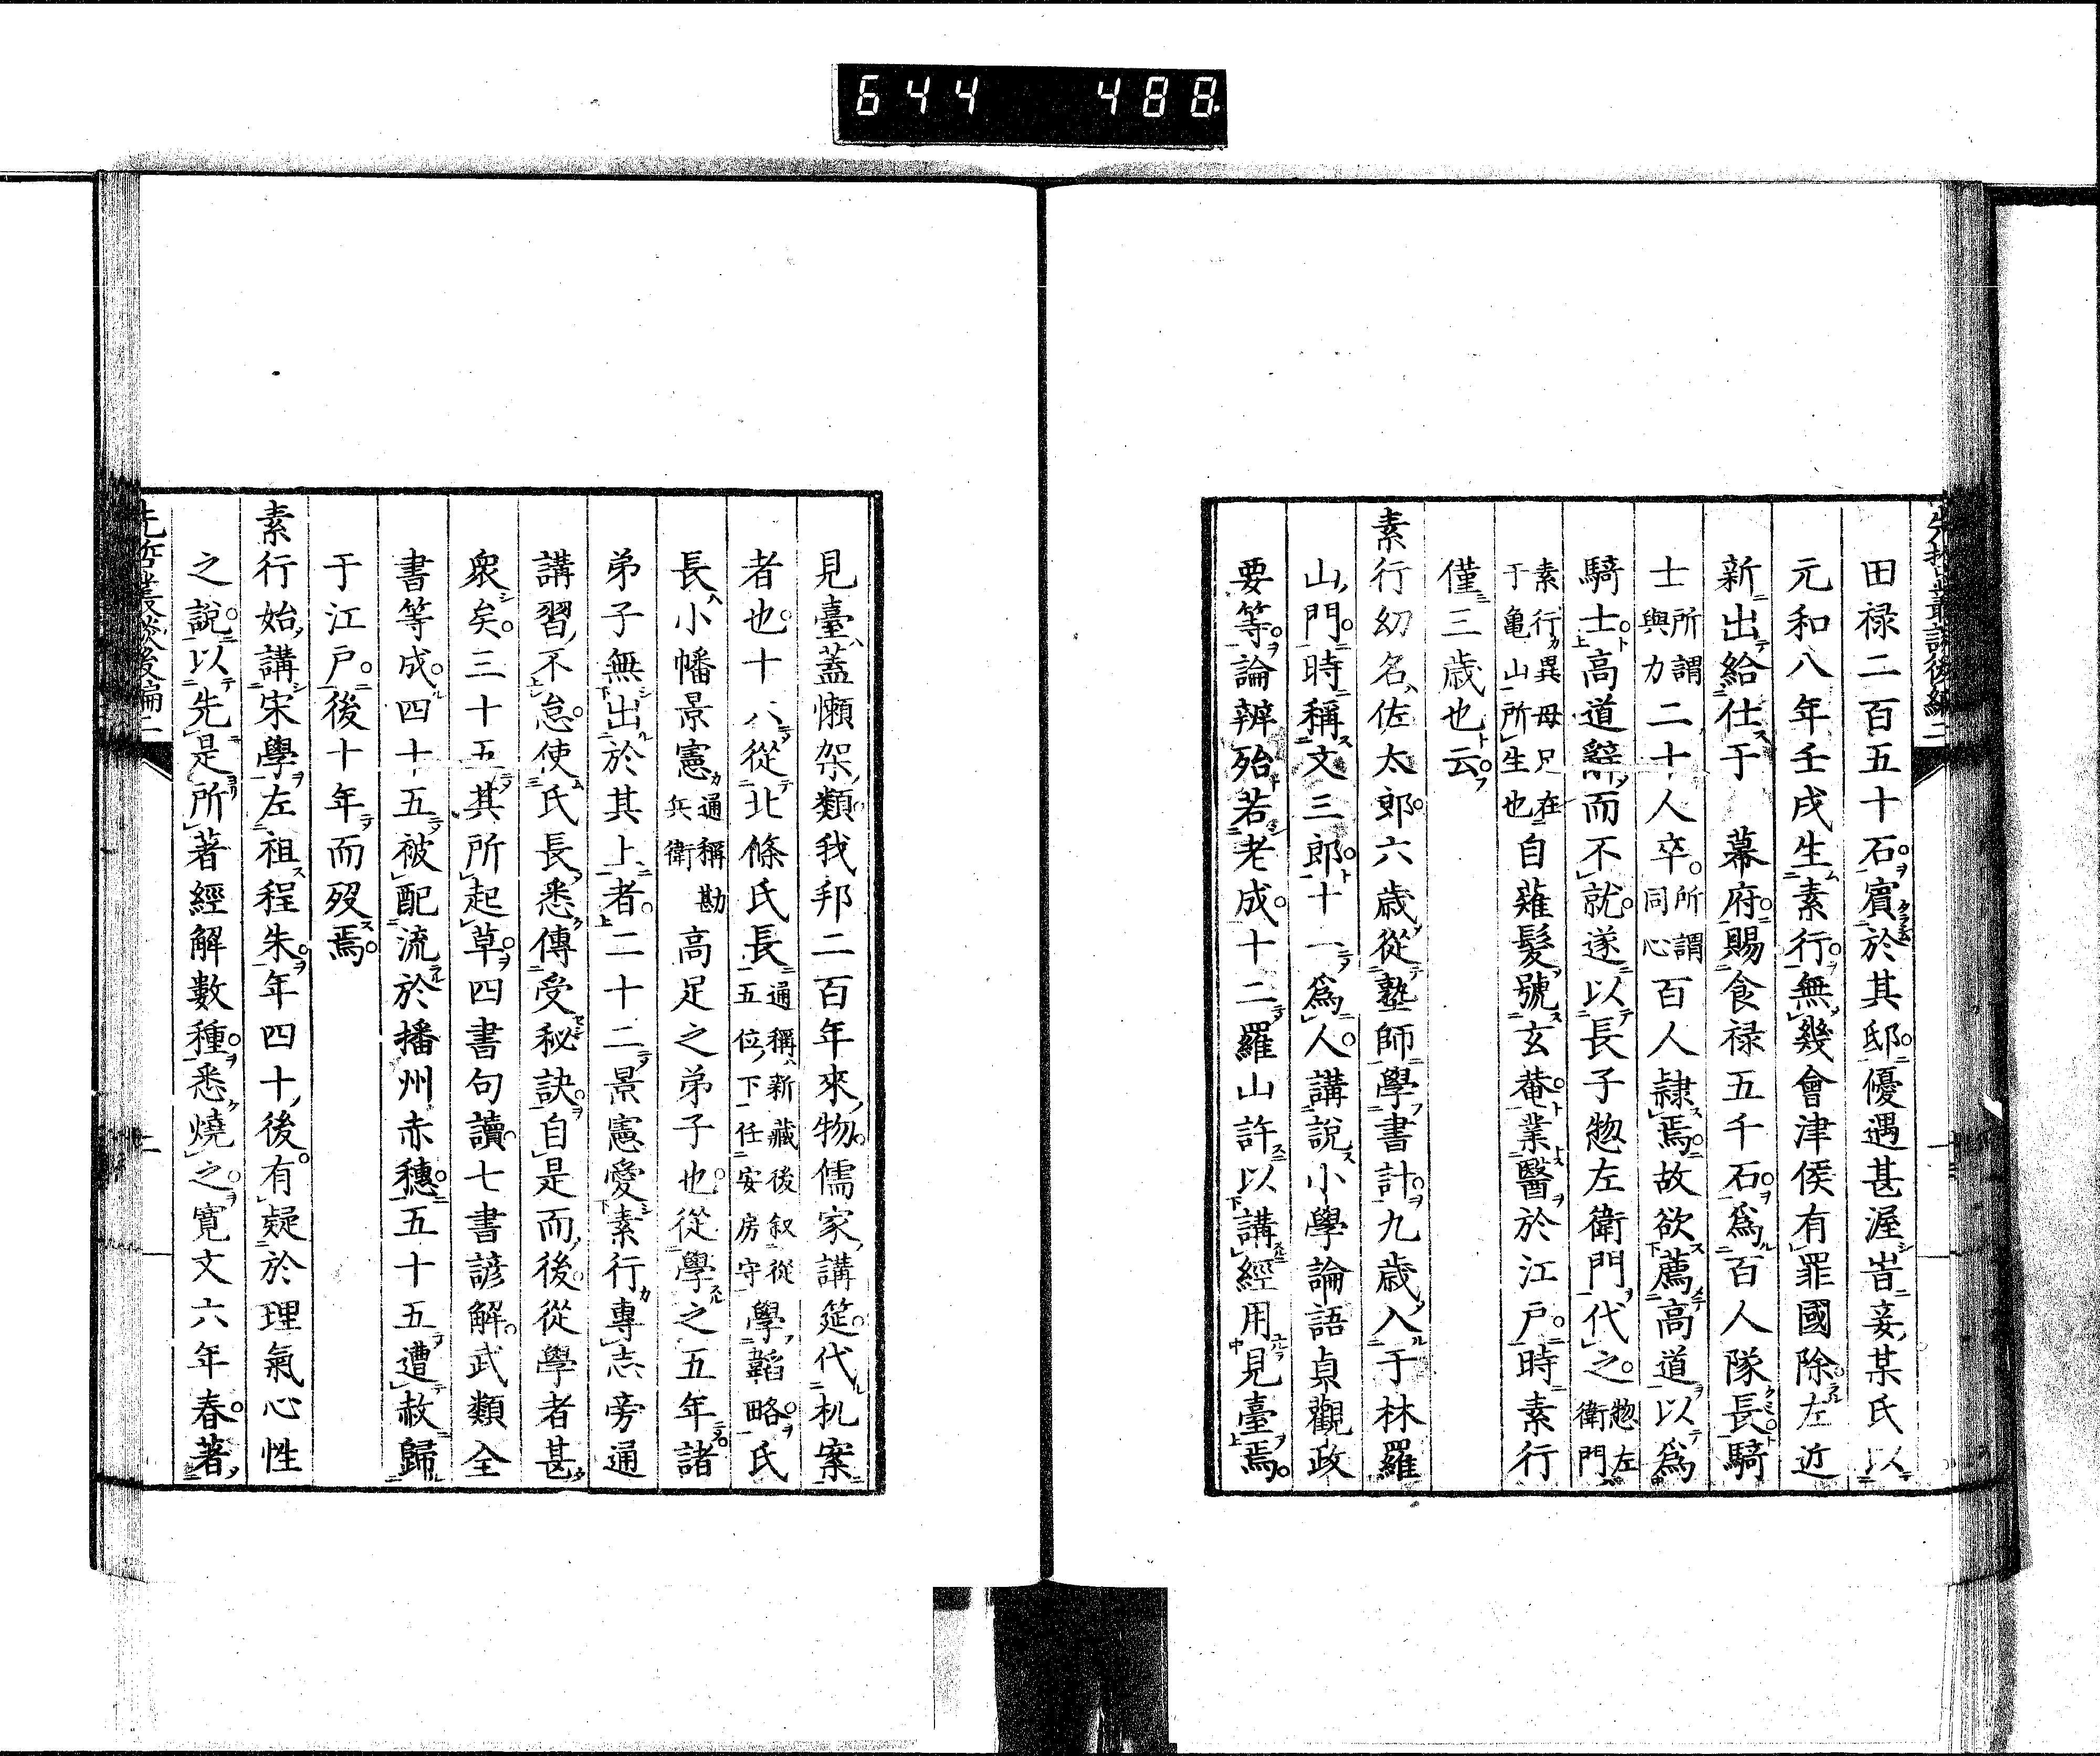 644 488
先哲叢談後編二
田禄二百五十石賓於其邸優遇甚渥峕妾某氏以
元和八年壬戌生素行無幾會津侯有罪國除左近
新出給仕于 幕府賜食禄五千石爲百人隊長騎
士所謂與力二十人卒所謂同心百人隷焉故欲薦高道以爲
騎士高道辭而不就遂以長子惣左衛門代之惣左衛門
素行異母兄在于亀山所生也自薙髮號玄菴業醫於江戸時素行
僅三歳也云
素行幼名佐太郎六歳從塾師學書計九歳入于林羅
山門時稱文三郎十一爲人講說小學論語貞觀政
要等論辨殆若老成十二羅山許以講經用見臺焉
見臺蓋懶架類我邦二百年來物儒家講筵代机案
者也十八從北條氏長通稱新藏後叙從五位下任安房守學韜略氏
長小幡景憲通稱勘兵衛高足之弟子也從學之五年諸
弟子無出於其上者二十二景憲愛素行專志旁通
講習不怠使氏長悉傳受秘訣自是而後從學者甚
衆矣三十五其所起草四書句讀七書諺解武類全
書等成四十五被配流於播州赤穗五十五遭赦歸
于江戸後十年而歿焉
素行始講宋學左祖程朱年四十後有疑於理氣心性
之說以先是所著經解數種悉燒之寛文六年春著
先哲叢談後編二